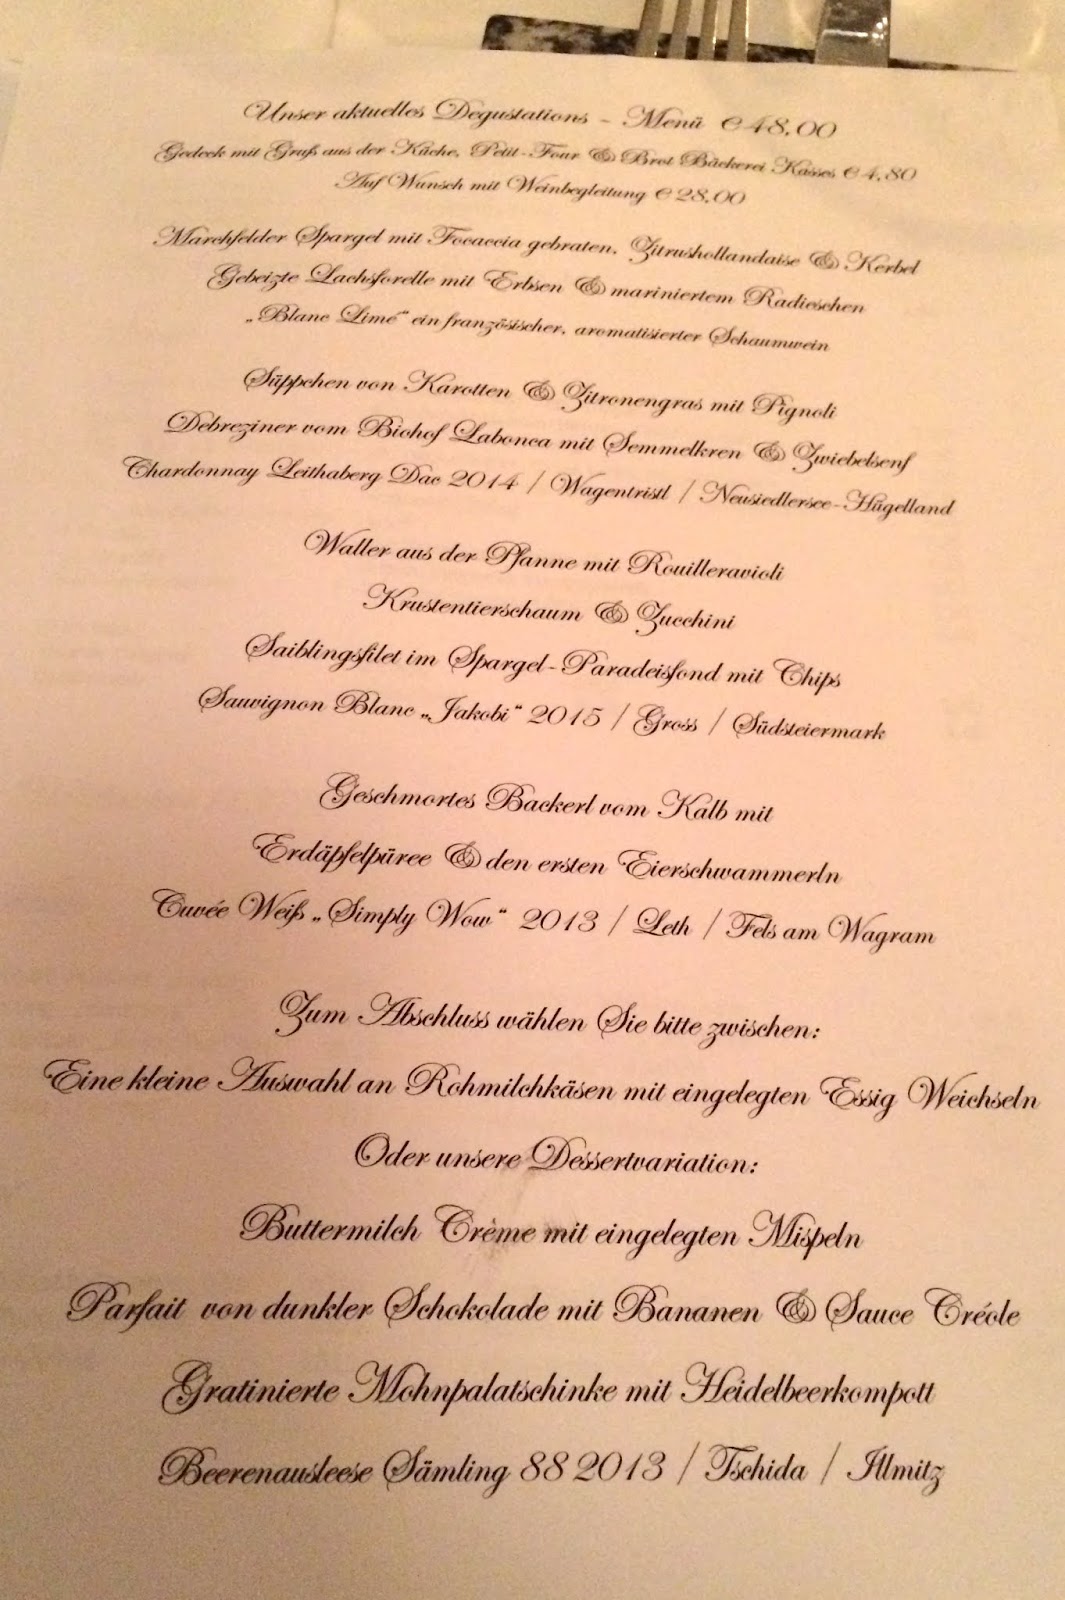 Unser aktuelles Degustations - Menü € 48,00
Gedeck mit Gruß aus der Küche, Petit-Four & Brot Bäckerei Kasses € 4,80
Auf Wunsch mit Weinbegleitung € 28,00
Marchfelder Spargel mit Focaccia gebraten, Zitrushollandaise & Kerbel
Gebeizte Lachsforelle mit Erbsen & mariniertem Radieschen
„Blanc Lime“ ein französischer, aromatisierter Schaumwein
Süppchen von Karotten & Zitronengras mit Pignoli
Debreziner vom Biohof Labonca mit Semmelkren & Zwiebelsenf
Chardonnay Leithaberg Dac 2014 / Wagentristl / Neusiedlersee-Hügelland
Waller aus der Pfanne mit Rouilleravioli
Krustentierschaum & Zucchini
Saiblingsfilet im Spargel-Paradeisfond mit Chips
Sauvignon Blanc „Jakobi“ 2015 / Gross / Südsteiermark
Geschmortes Backerl vom Kalb mit
Erdäpfelpüree & den ersten Eierschwammerln
Cuvée Weiß „Simply Wow“ 2013 / Leth / Fels am Wagram
Zum Abschluss wählen Sie bitte zwischen:
Eine kleine Auswahl an Rohmilchkäsen mit eingelegten Essig Weichseln
Oder unsere Dessertvariation:
Buttermilch Crème mit eingelegten Mispeln
Parfait von dunkler Schokolade mit Bananen & Sauce Créole
Gratinierte Mohnpalatschinke mit Heidelbeerkompott
Beerenausleese Sämling 88 2013 / Tschida / Illmitz